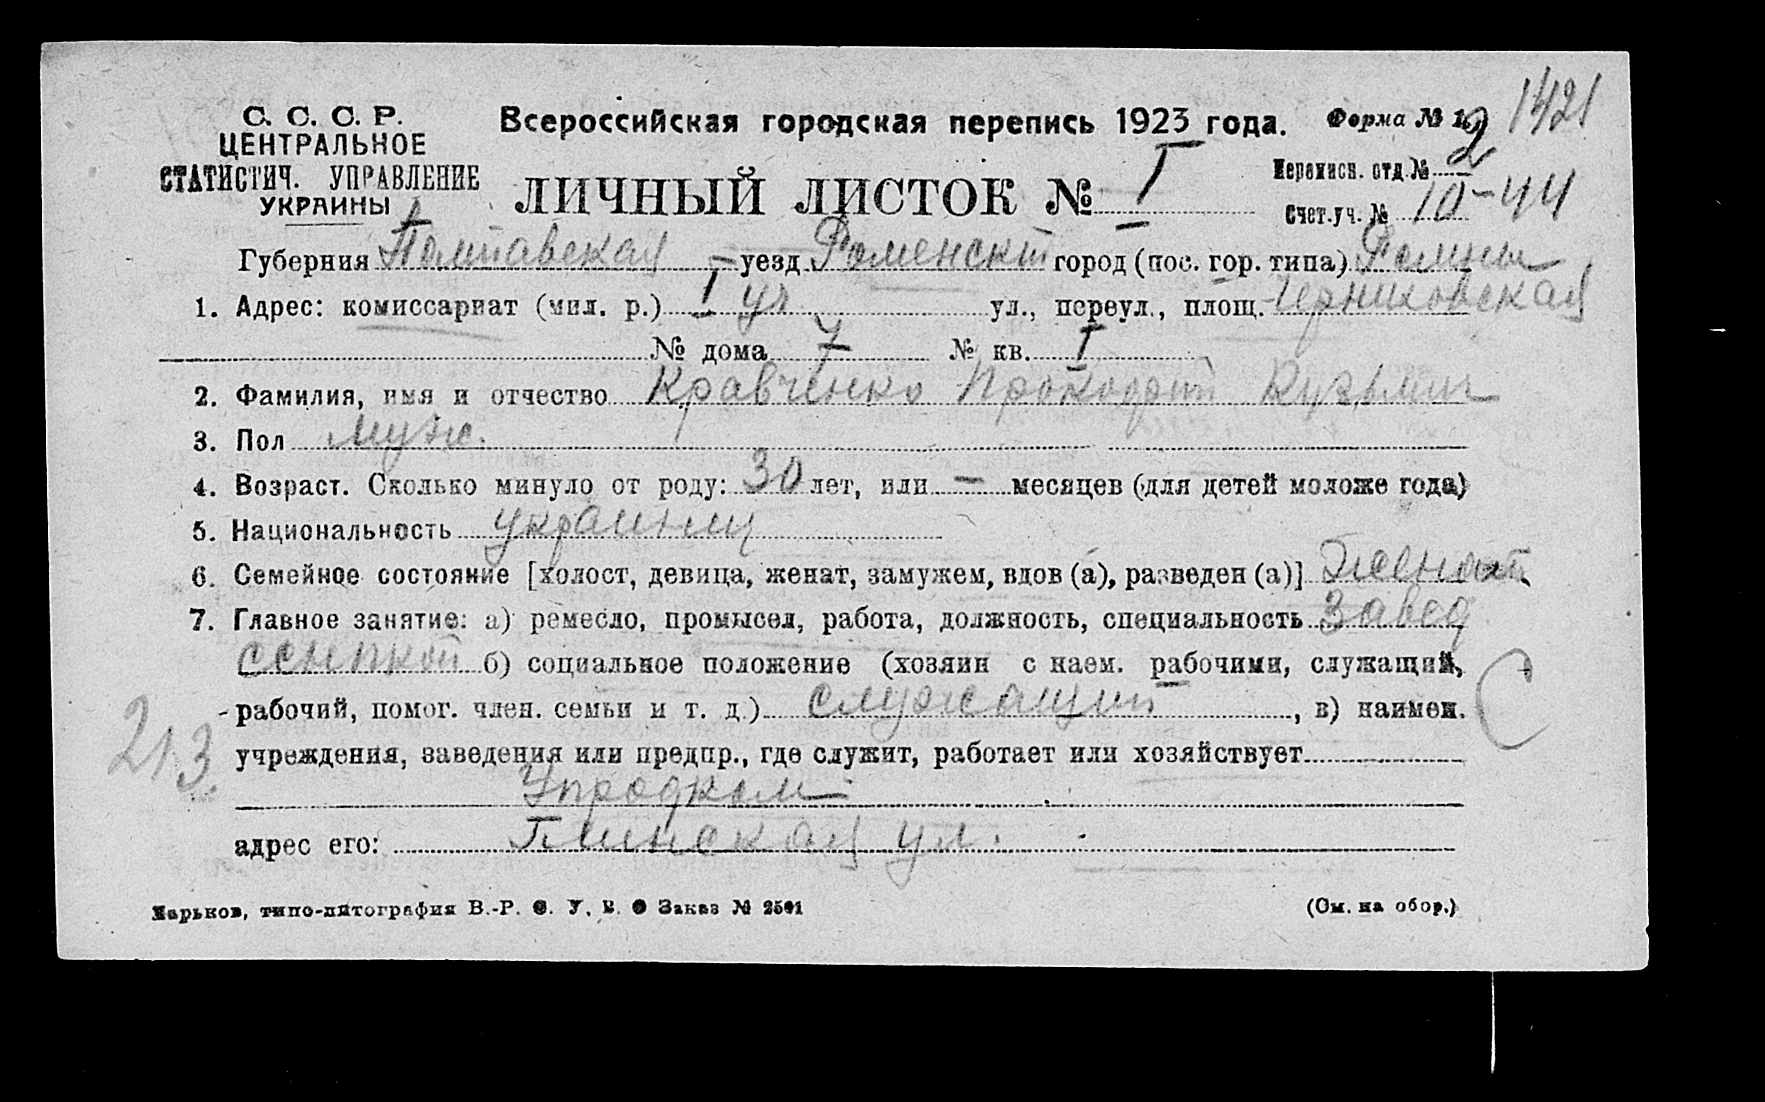 С. С. С. Р.
ЦЕНТРАЛЬНОЕ
СТАТИСТИЧ. УПРАВЛЕНИЕ
УКРАИНЫ
Всероссийская городская перепись 1923 года.
Форма №
1421
ЛИЧНЫЙ ЛИСТОК № I
Переписн. отд. № 2
Счет. уч. № 10-44
Губерния Полтавская уезд Роменский город (пос. гор. типа) Ромны
1. Адрес: комиссариат (мил. р.) I уч ул., переул., площ. Черниховская
№ дома 7 № кв. I
2. Фамилия, имя и отчество Кравченко Кузьмич
3. Пол муж.
4. Возраст. Сколько минуло от роду: 30 лет, или — месяцев (для детей моложе года)
5. Национальность украинец
6. Семейное состояние [холост, девица, женат, замужем, вдов (а), разведен (а)] женат
7. Главное занятие: а) ремесло, промысел, работа, должность, специальность Завед
ссыпкой б) социальное положение (хозяин с наем. рабочими, служащий,
рабочий, помог. член. семьи и т. д.) служащий, в) наимен.
учреждения, заведения или предпр., где служит, работает или хозяйствует
Упродком
адрес его: ул.
213
С
Харьков, типо-литография В.-Р. Заказ №
(См. на обор.)